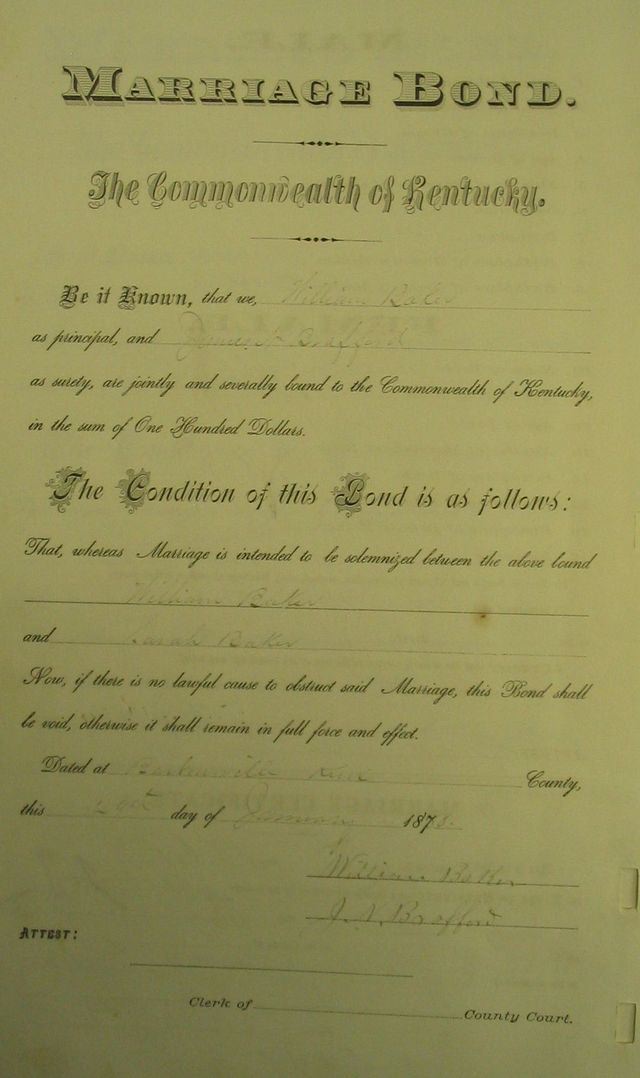 MARRIAGE BOND.
The Commonwealth of Kentucky.
Be it Known, that we, William Baker
as principal, and Brafford
as surety, are jointly and severally bound to the Commonwealth of Kentucky,
in the sum of One Hundred Dollars.
The Condition of this Bond is as follows:
That, whereas Marriage is intended to be solemnized between the above bound
William Baker
and Sarah Baker
Now, if there is no lawful cause to obstruct said Marriage, this Bond shall
be void, otherwise it shall remain in full force and effect.
Dated at County,
this day of January 187
William Baker
J. N. Brafford
ATTEST:
Clerk of County Court.